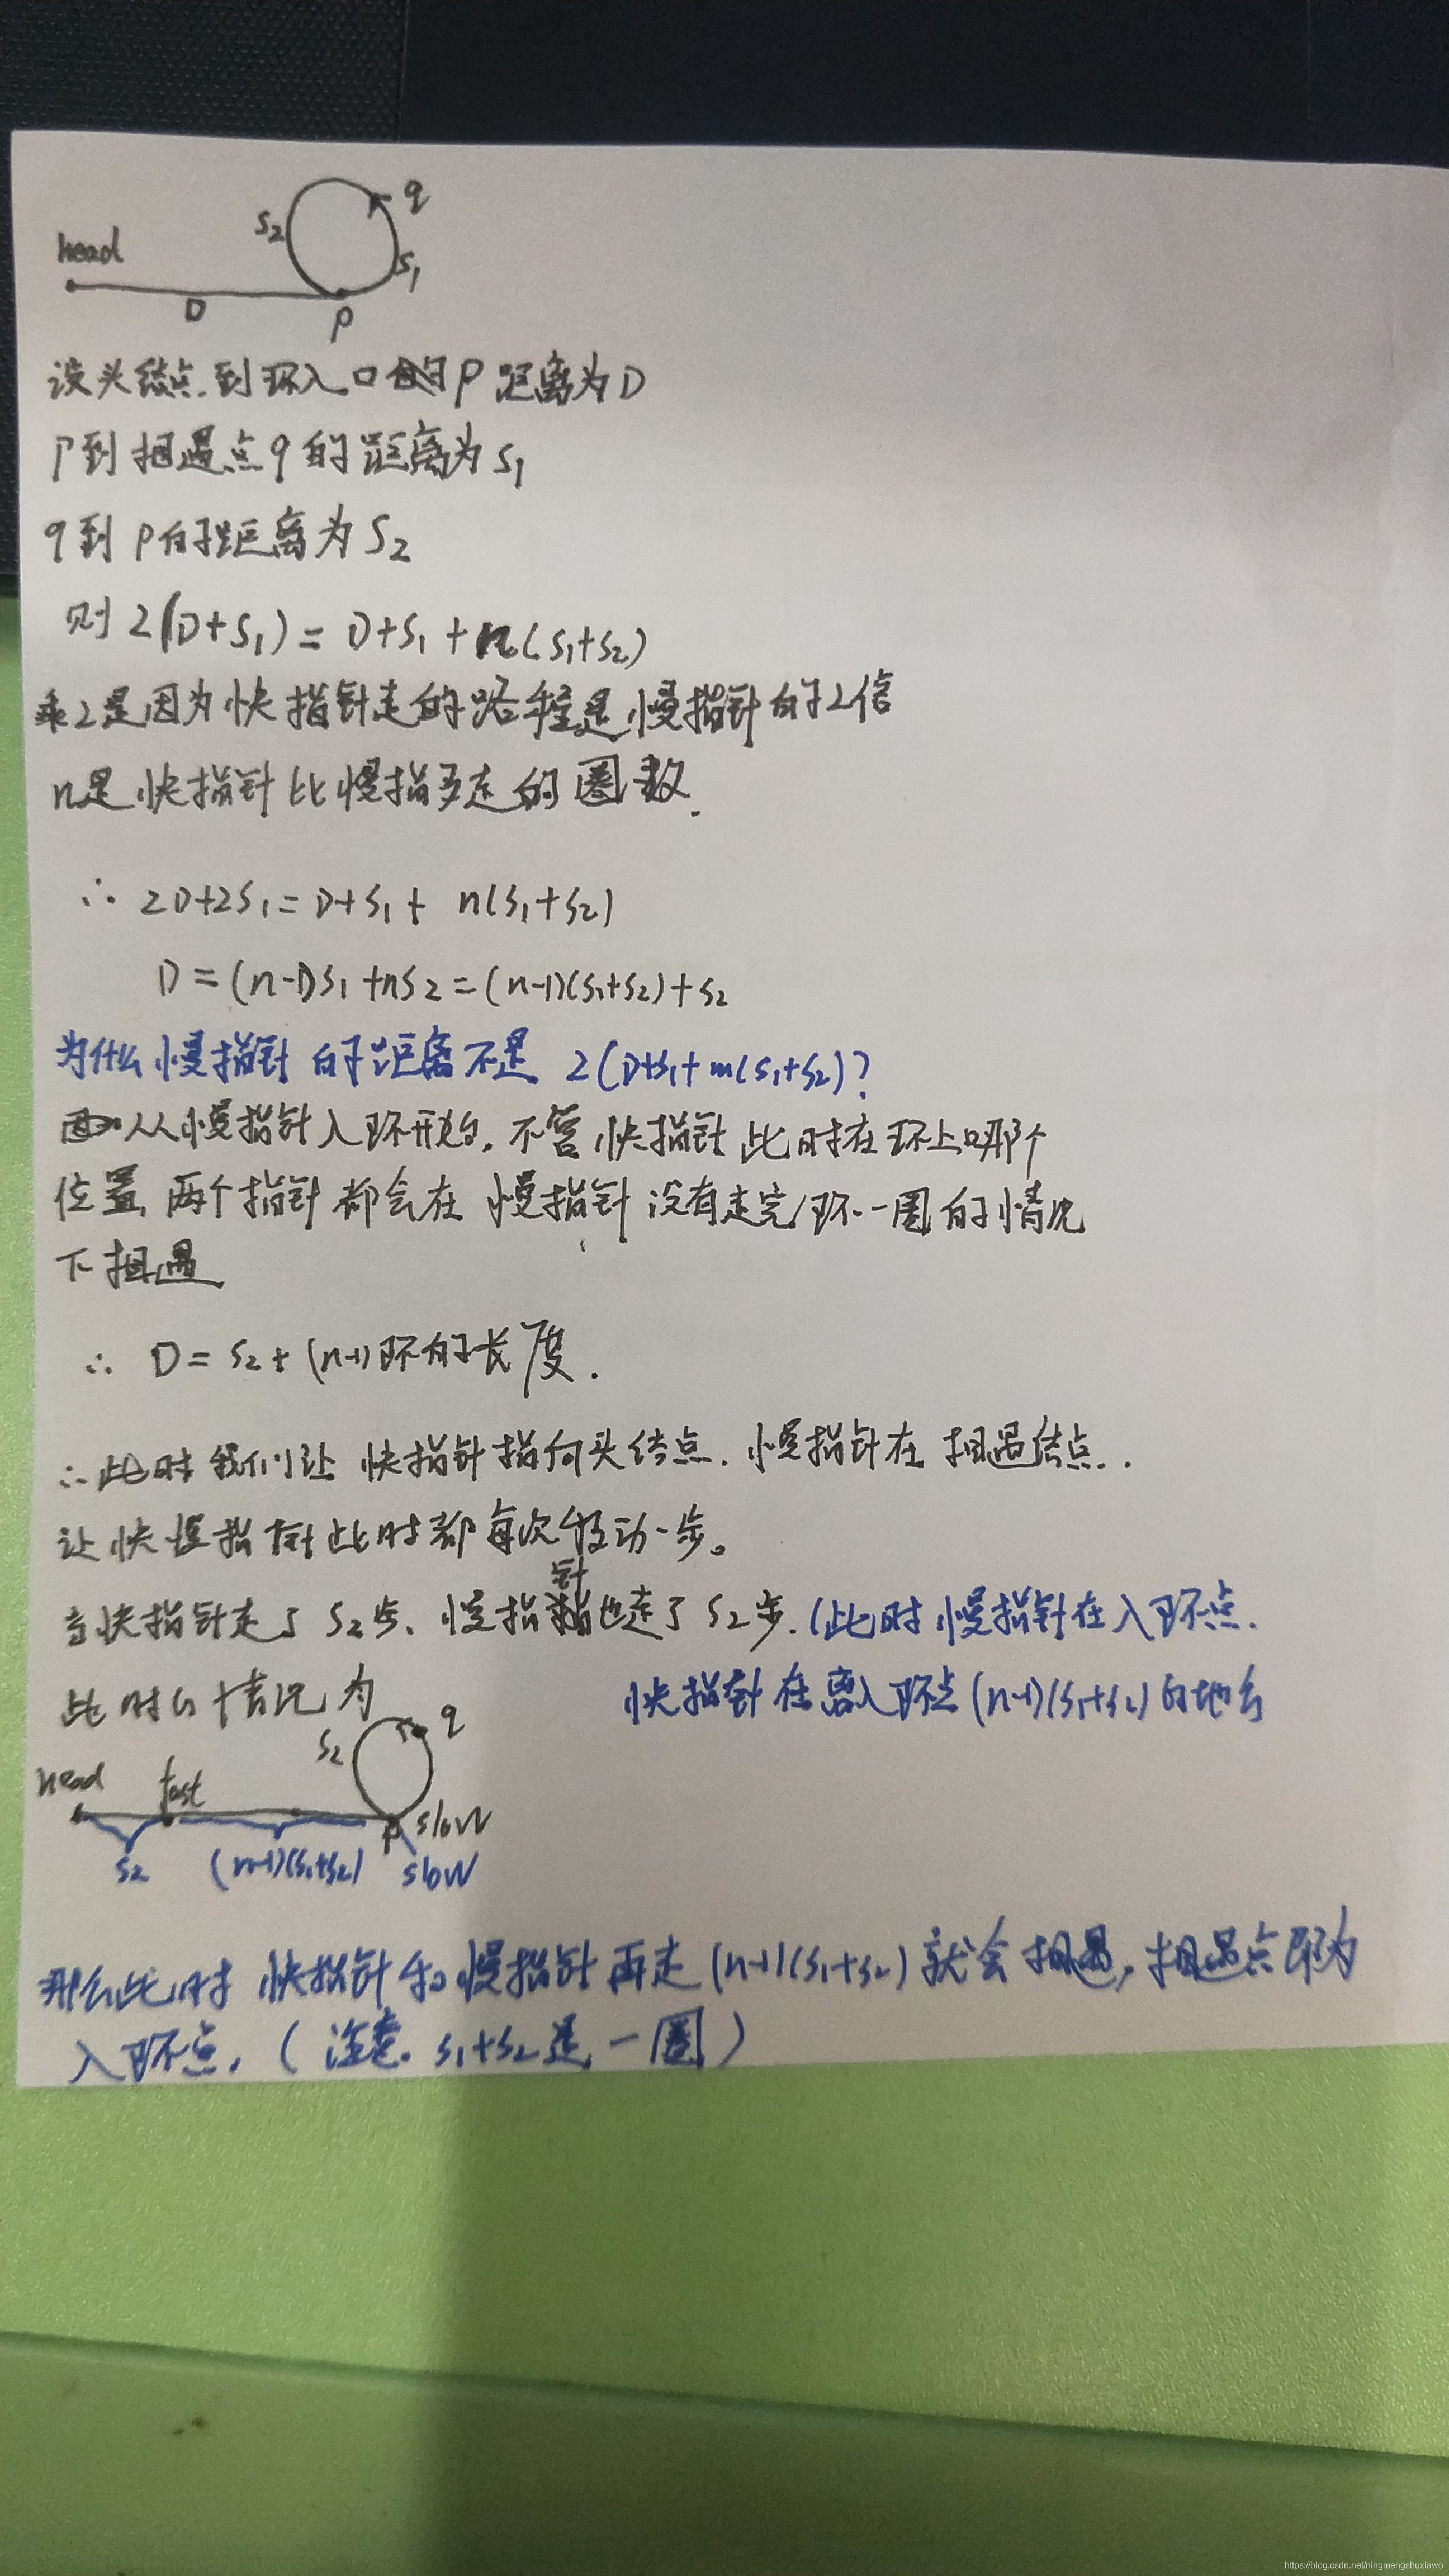 head
D
P
S2
S1
q
设头结点到环入口的P距离为D
P到相遇点q的距离为S1
q到P的距离为S2
则 2(D+S1) = D+S1+n(S1+S2)
乘2是因为快指针走的路程是慢指针的2倍
n是快指针比慢指多走的圈数.
∴ 2D+2S1=D+S1+ n(S1+S2)
D=(n-1)S1+nS2=(n-1)(S1+S2)+S2
为什么慢指针的距离不是 2(D+S1+m(S1+S2)?
从慢指针入环开始,不管快指针此时在环上哪个
位置,两个指针都会在慢指针没有走完环一圈的情况
下相遇
∴ D= S2+(n-1)环的长度.
∴此时我们让快指针指向头结点.慢指针在相遇结点..
让快慢指针此时都每次移动一步。
当快指针走了S2步、慢指针也走了S2步.(此时慢指针在入环点.
快指针在离入环点(n-1)(S1+S2)的地方
此时的情况为
head
fast
S2
q
P
slow
S2
(n-1)(S1+S2)
slow
那么此时快指针和慢指针再走(n-1)(S1+S2)就会相遇,相遇点即为
入环点,(注意. S1+S2是一圈)
https://blog.csdn.net/ningmengshuxiawo